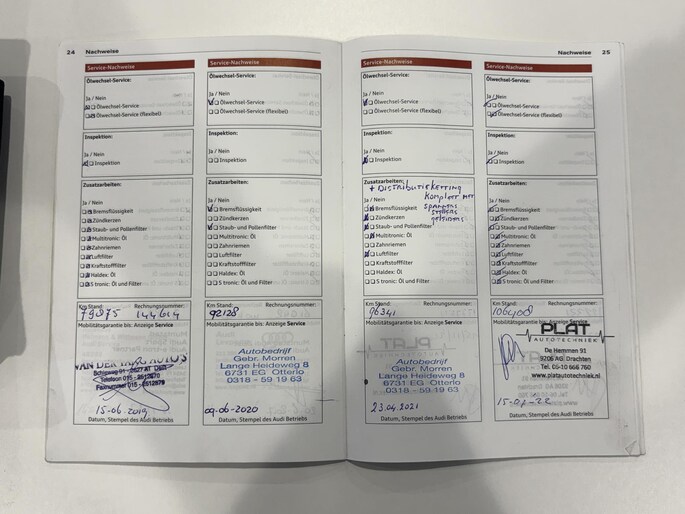 24 Nachweise
Service-Nachweise
Ölwechsel-Service:
Ja / Nein
Ölwechsel-Service
Ölwechsel-Service (flexibel)
Inspektion:
Ja / Nein
Inspektion
Zusatzarbeiten:
Ja / Nein
Bremsflüssigkeit
Zündkerzen
Staub- und Pollenfilter
Multitronic: Öl
Zahnriemen
Luftfilter
Kraftstofffilter
Haldex: Öl
S tronic: Öl und Filter
Km Stand: Rechnungsnummer:
79875 144614
Mobilitätsgarantie bis: Anzeige Service
15-06-2019
Datum, Stempel des Audi Betriebs
Service-Nachweise
Ölwechsel-Service:
Ja / Nein
Ölwechsel-Service
Ölwechsel-Service (flexibel)
Inspektion:
Ja / Nein
Inspektion
Zusatzarbeiten:
Ja / Nein
Bremsflüssigkeit
Zündkerzen
Staub- und Pollenfilter
Multitronic: Öl
Zahnriemen
Luftfilter
Kraftstofffilter
Haldex: Öl
S tronic: Öl und Filter
Km Stand: Rechnungsnummer:
92128
Mobilitätsgarantie bis: Anzeige Service
Autobedrijf
Gebr. Morren
Lange Heideweg 8
6731 EG Otterlo
0318 - 59 19 63
09-06-2020
Datum, Stempel des Audi Betriebs
Nachweise 25
Service-Nachweise
Ölwechsel-Service:
Ja / Nein
Ölwechsel-Service
Ölwechsel-Service (flexibel)
Inspektion:
Ja / Nein
Inspektion
Zusatzarbeiten:
+ DISTRIBUTIEKETTING
Ja / Nein
Komplett met
Bremsflüssigkeit spanners
Zündkerzen
Staub- und Pollenfilter
Multitronic: Öl
Zahnriemen
Luftfilter
Kraftstofffilter
Haldex: Öl
S tronic: Öl und Filter
Km Stand: Rechnungsnummer:
96341
Mobilitätsgarantie bis: Anzeige Service
Autobedrijf
Gebr. Morren
Lange Heideweg 8
6731 EG Otterlo
0318 - 59 19 63
23.04.2021
Datum, Stempel des Audi Betriebs
Service-Nachweise
Ölwechsel-Service:
Ja / Nein
Ölwechsel-Service
Ölwechsel-Service (flexibel)
Inspektion:
Ja / Nein
Inspektion
Zusatzarbeiten:
Ja / Nein
Bremsflüssigkeit
Zündkerzen
Staub- und Pollenfilter
Multitronic: Öl
Zahnriemen
Luftfilter
Kraftstofffilter
Haldex: Öl
S tronic: Öl und Filter
Km Stand: Rechnungsnummer:
106408
Mobilitätsgarantie bis: Anzeige Service
PLAT
AUTOTECHNIEK
De Hemmen 91
9206 AG Drachten
www.platautotechniek.nl
Datum, Stempel des Audi Betriebs